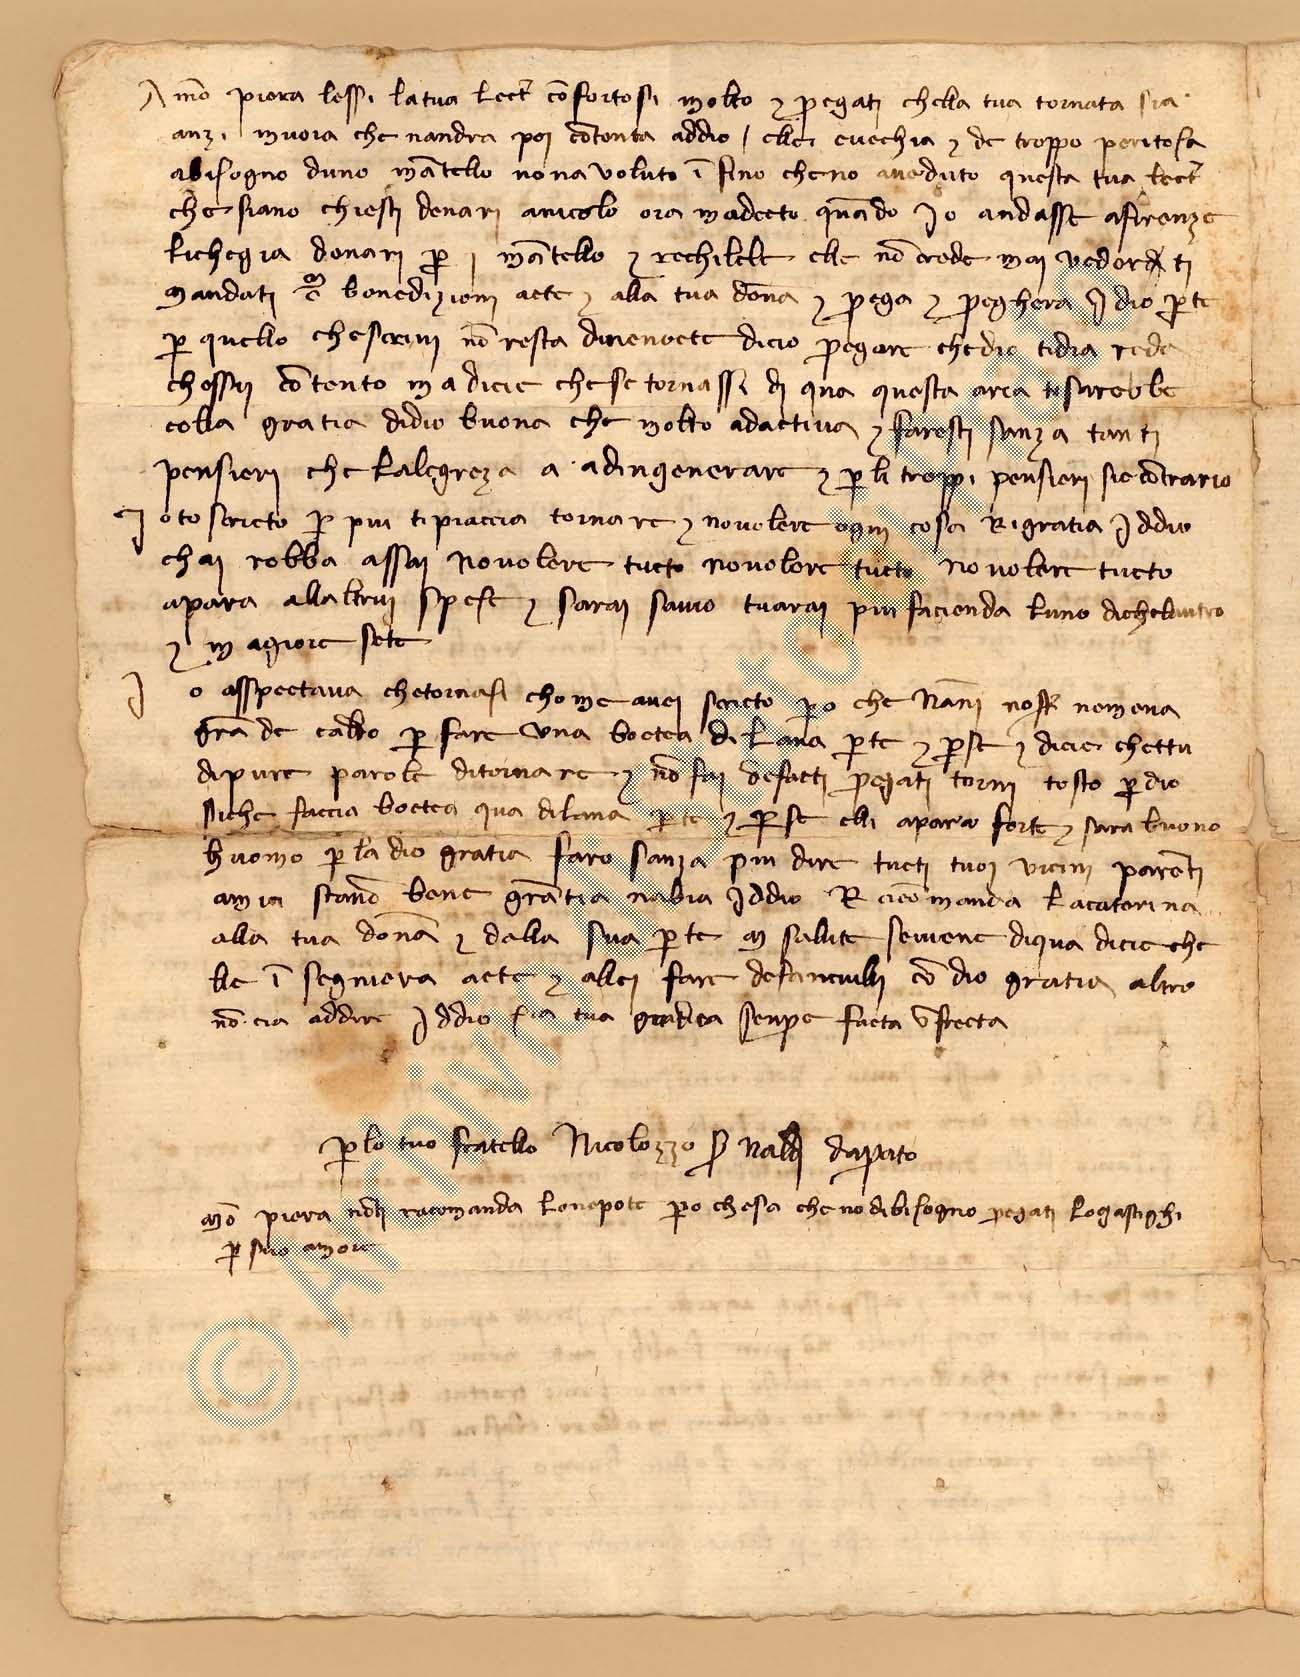 A mo piera lessi latua lect confortosi molto & pregati chella tua tornata sia
anzi muoia che nandra poi contenta addio / elle evechia & de troppo peritosa
abisogno duno mantello nona voluto insino cheno aveduto questa tua lect
che siano chiesti denari anicolo ora madecto quando Io andasse afirenze
lichegia denari per j mantello & rechilele elle non crede mai vederti
mandati benedizioni aete & alla tua dona & prega & pregherra Idio per te
per quello chescrivi non resta dicio pregare chedio tidia rede
chessii contento ma dicie chese tornassi di qua questa aria tisarebbe
colla gratia didio buona che molto adactiva & faresti sanza tanti
pensieri che lalegreza a adingenerare & per li troppi pensieri sie contrario
I oto scricto per piu tipiaccia tornare & novolere ogni cosa Rigratia Iddio
chai robba assai novolere tucto novolere tucto novolere tucto
apara allaltrui spese & sarai savio tuarai piu facienda luno dichelaltro
& magiore sete
I o asspectava chetornasi chome avei scricto pero che Nanni nemena
grande caldo per fare una boctea di Lana per te & per se & dicie chettu
dipure parole ditornare & non fai defacti pregati torni tosto per dio
siche faccia boctea qua dilana per te & per se elli apara forte & sara buono
huomo per la dio gratia faro sanza piu dire tucti tuoi vicini parenti
amia stano bene grantia nabia Iddio Raciomanda Lacaterina
alla tua dona & dalla sua per te m salute seviene diqua dicie che
le insegniera aete & allei fare defanciulli con dio gratia altro
non cia addire Iddio sia tua guardia senpre facta infrecta
Per lo tuo fratello Nicolozzo ser Naldi daprato
mo piera racomanda lonepote pero chesa chenodibisogno pregati logastighi
per suo amore
© Archivio di Stato di Prato